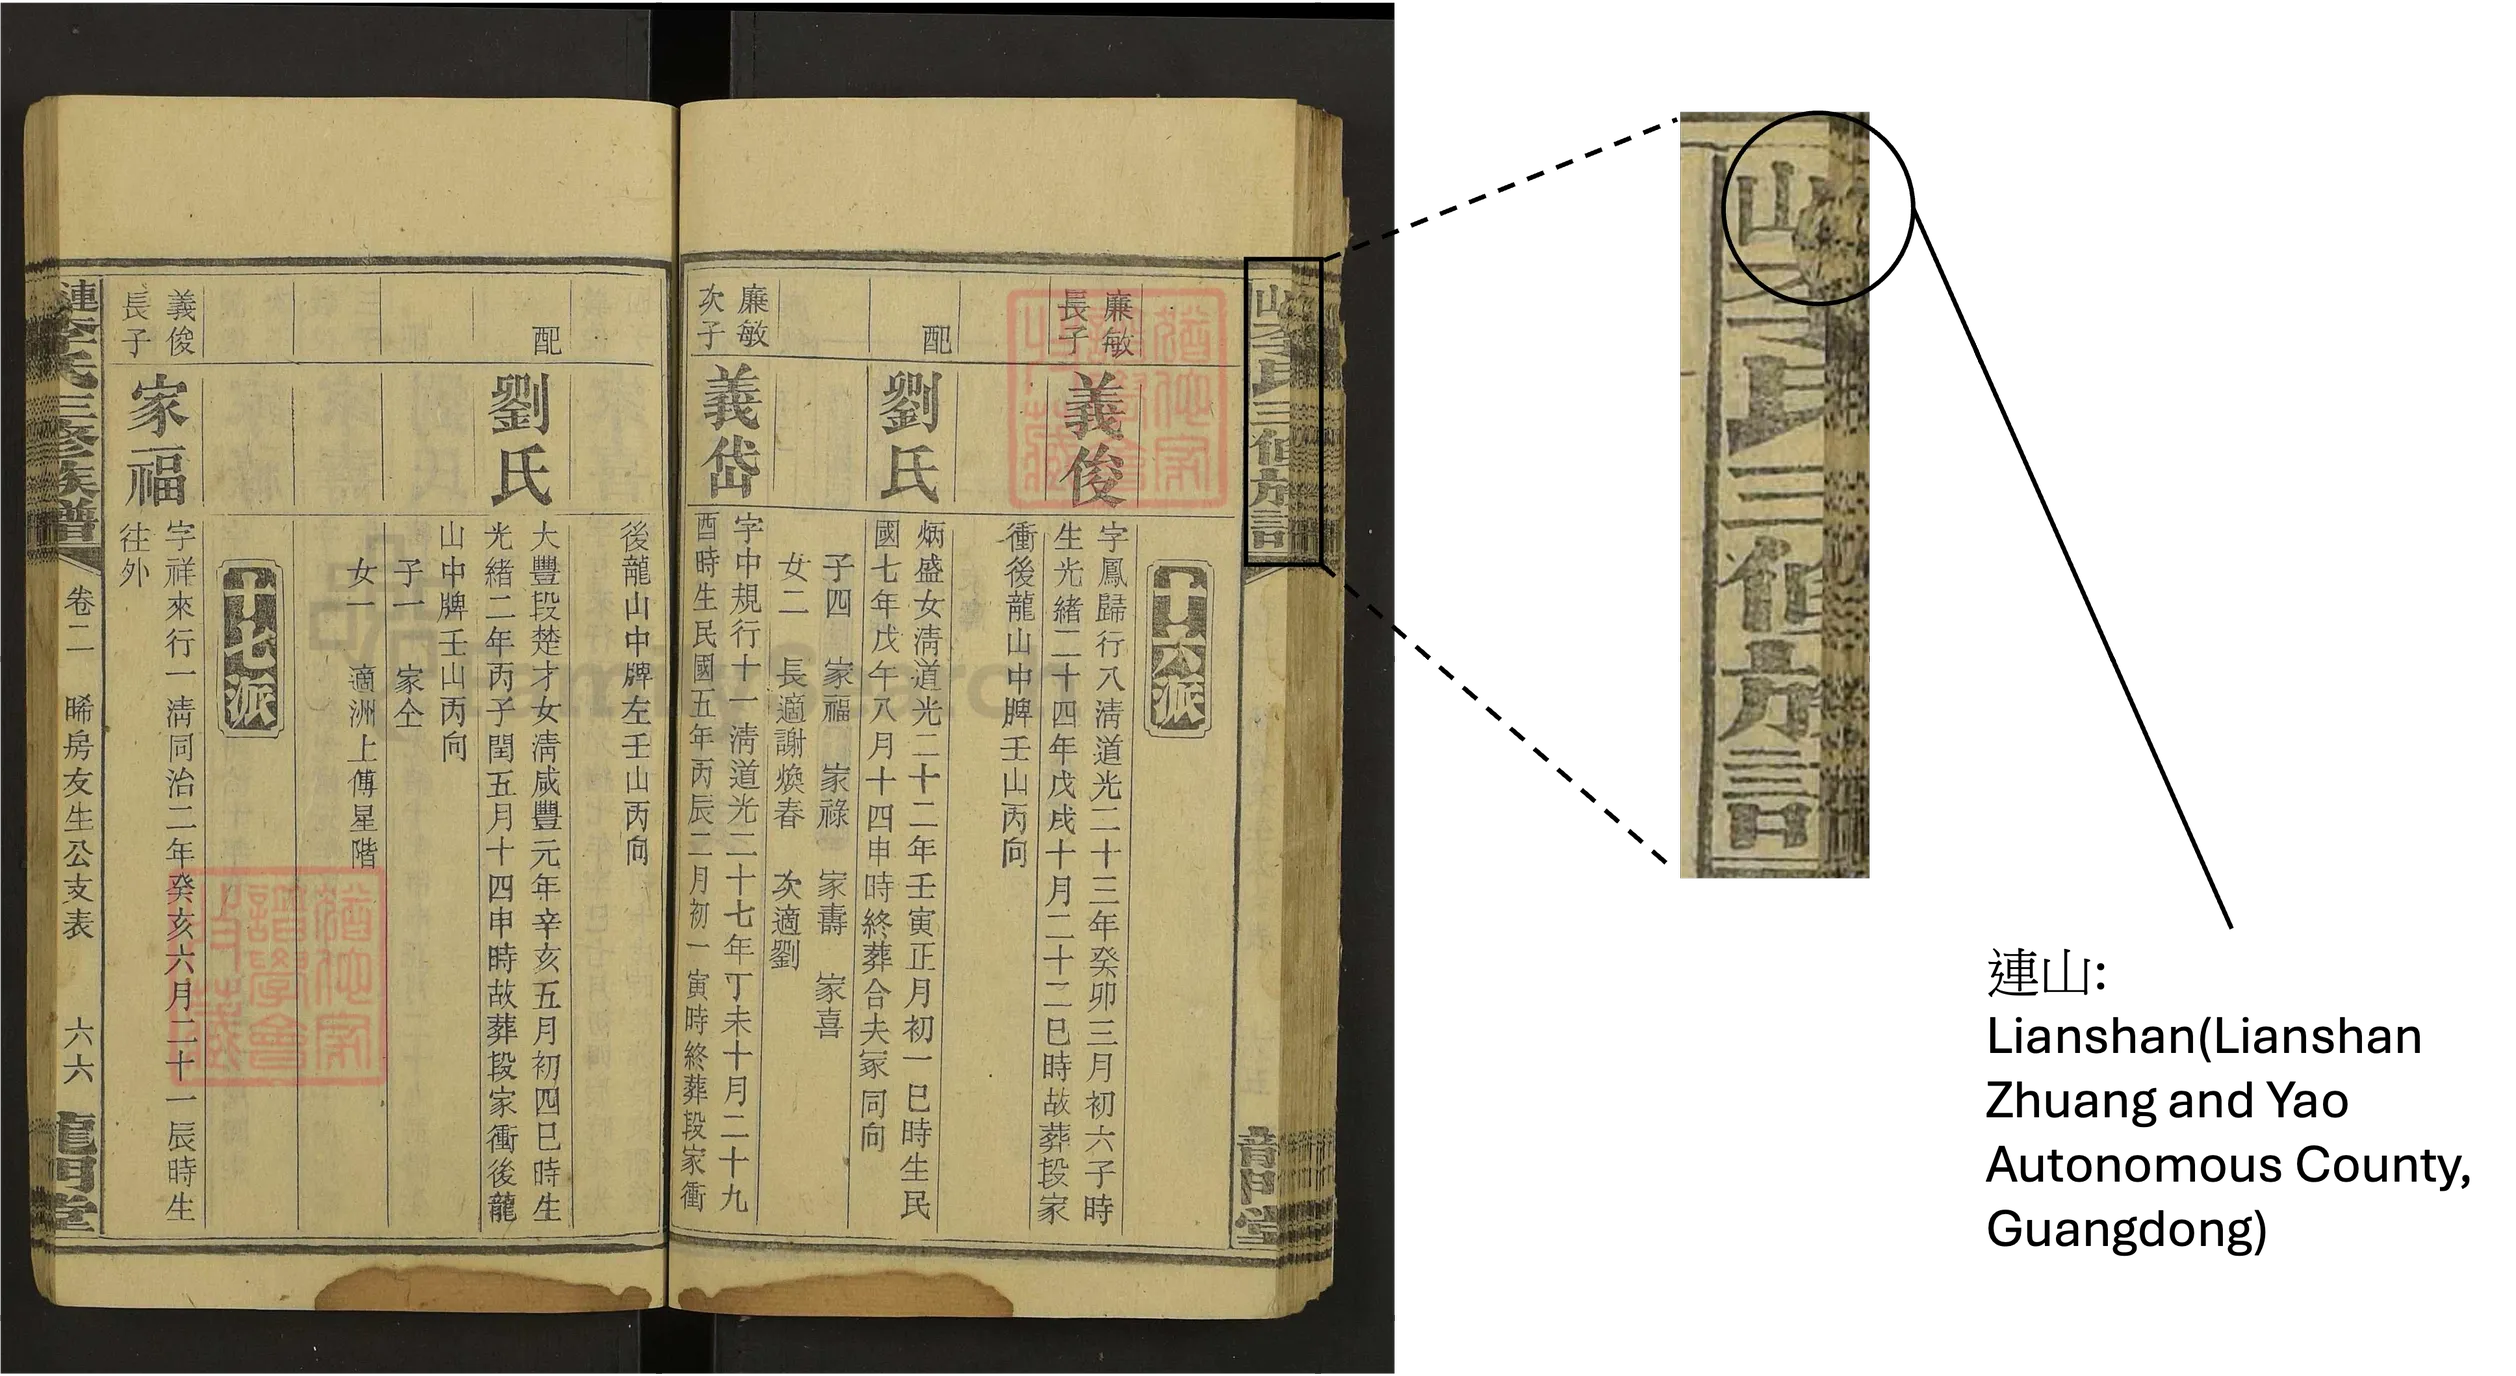 山
三
十六派
廉敏
長子
義俊
字鳳歸行八清道光二十三年癸卯三月初六子時
生光緒二十四年戊戌十月二十二巳時故葬段家
衝後龍山中脾壬山丙向
配
劉氏
炳盛女清道光二十二年壬寅正月初一巳時生民
國七年戊午八月十四申時終葬合夫冢同向
子四 家福 家祿 家壽 家喜
女二 長適謝煥春 次適劉
廉敏
次子
義岱
字中規行十一清道光二十七年丁未十月二十九
酉時生民國五年丙辰二月初一寅時終葬段家衝
後龍山中牌左壬山丙向
配
劉氏
大豐段楚才女清咸豐元年辛亥五月初四巳時生
光緒二年丙子閏五月十四申時故葬段家衝後龍
山中牌壬山丙向
子一 家仝
女一 適洲上傅星階
十七派
義俊
長子
家福
字祥來行一清同治二年癸亥六月二十一辰時生
往外
漣李氏三修族譜 卷二 晞房友生公支表 六六 龍門堂
猶他家
譜學會
FamilySearch
山
三
連山:
Lianshan(Lianshan
Zhuang and Yao
Autonomous County,
Guangdong)